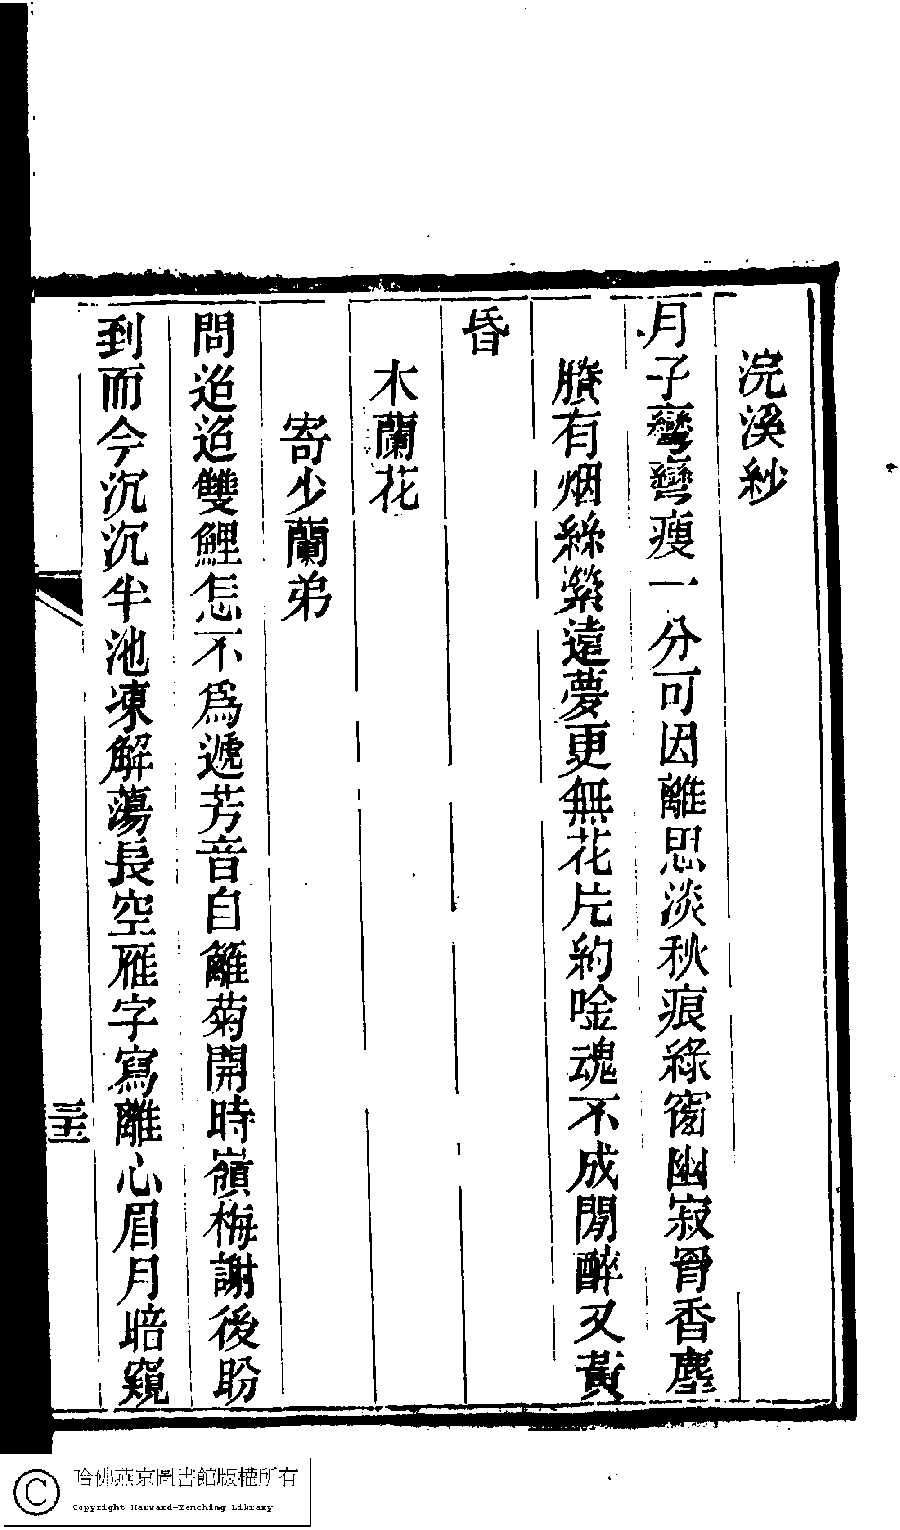 浣溪紗
月子彎彎瘦一分可因離思淡秋痕綠窗幽寂胥香塵
賸有烟絲縈遠夢更無花片約唫魂不成閒醉又黃
昏
木蘭花
寄少蘭弟
問迢迢雙鯉怎不爲遞芳音自籬菊開時嶺梅謝後盼
到而今沉沉半池凍解蕩長空雁字寫離心眉月暗窺
三十五
哈佛燕京圖書館版權所有
Copyright Harvard-Yenching Library